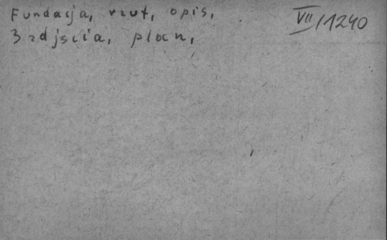 Fundacja, rzut, opis, VII/1240
3 zdjęcia, plan,